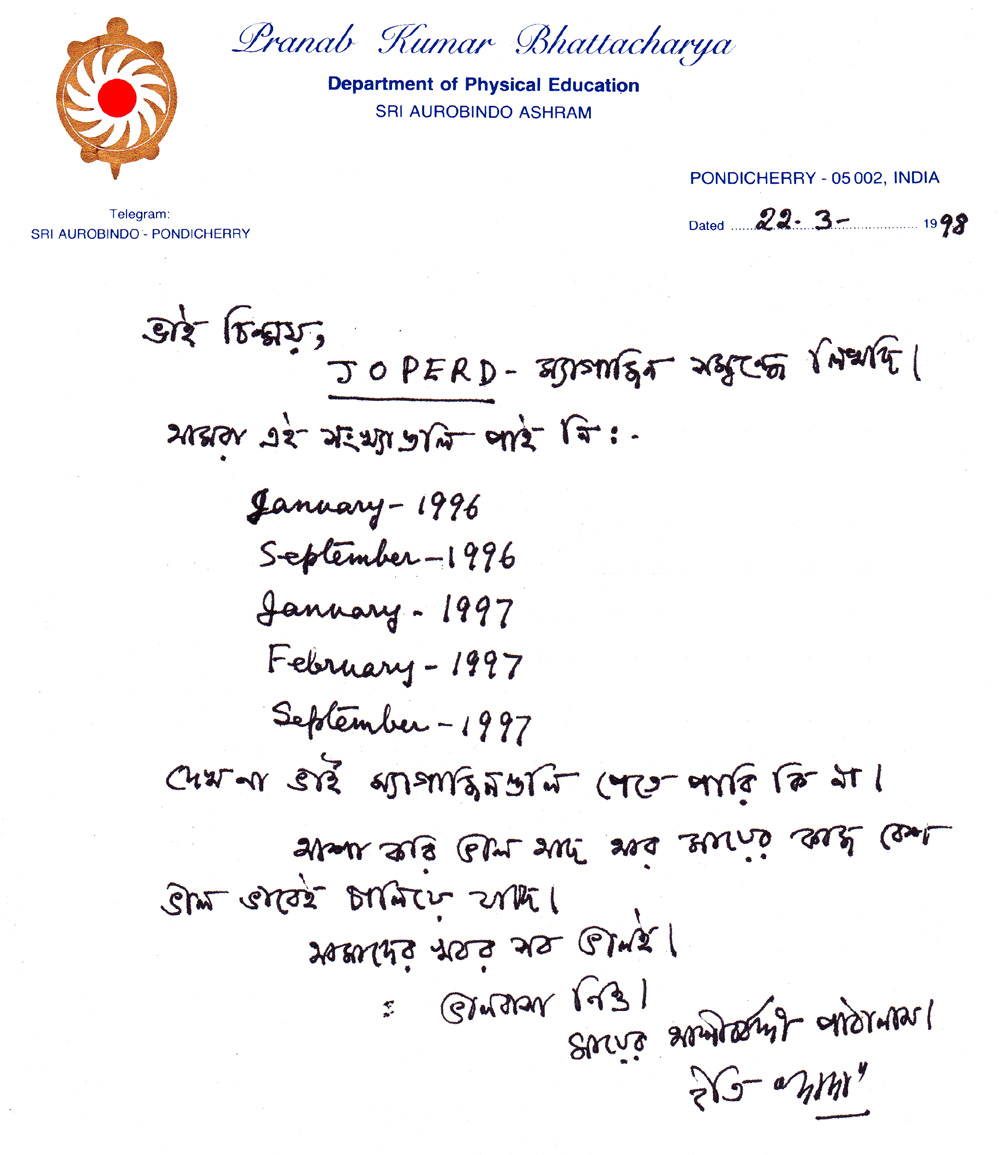 Pranab Kumar Bhattacharya
Department of Physical Education
SRI AUROBINDO ASHRAM
PONDICHERRY - 05 002, INDIA
Telegram:
SRI AUROBINDO - PONDICHERRY
Dated 22. 3- 1998
ভাই চিন্ময়,
JOPERD - ম্যাগাজিন সম্বন্ধে লিখছি।
আমরা এই সংখ্যাগুলি পাই নি :-
January - 1996
September - 1996
January - 1997
February - 1997
September - 1997
দেখ না ভাই ম্যাগাজিনগুলি পেতে পারি কি না।
আশা করি ভাল আছ আর মায়ের কাজ বেশ
ভাল ভাবেই চালিয়ে যাচ্ছ।
আমাদের খবর সব ভালই।
ভালবাসা নিও।
মায়ের আশীর্ব্বাদী পাঠালাম।
ইতি "দাদা"